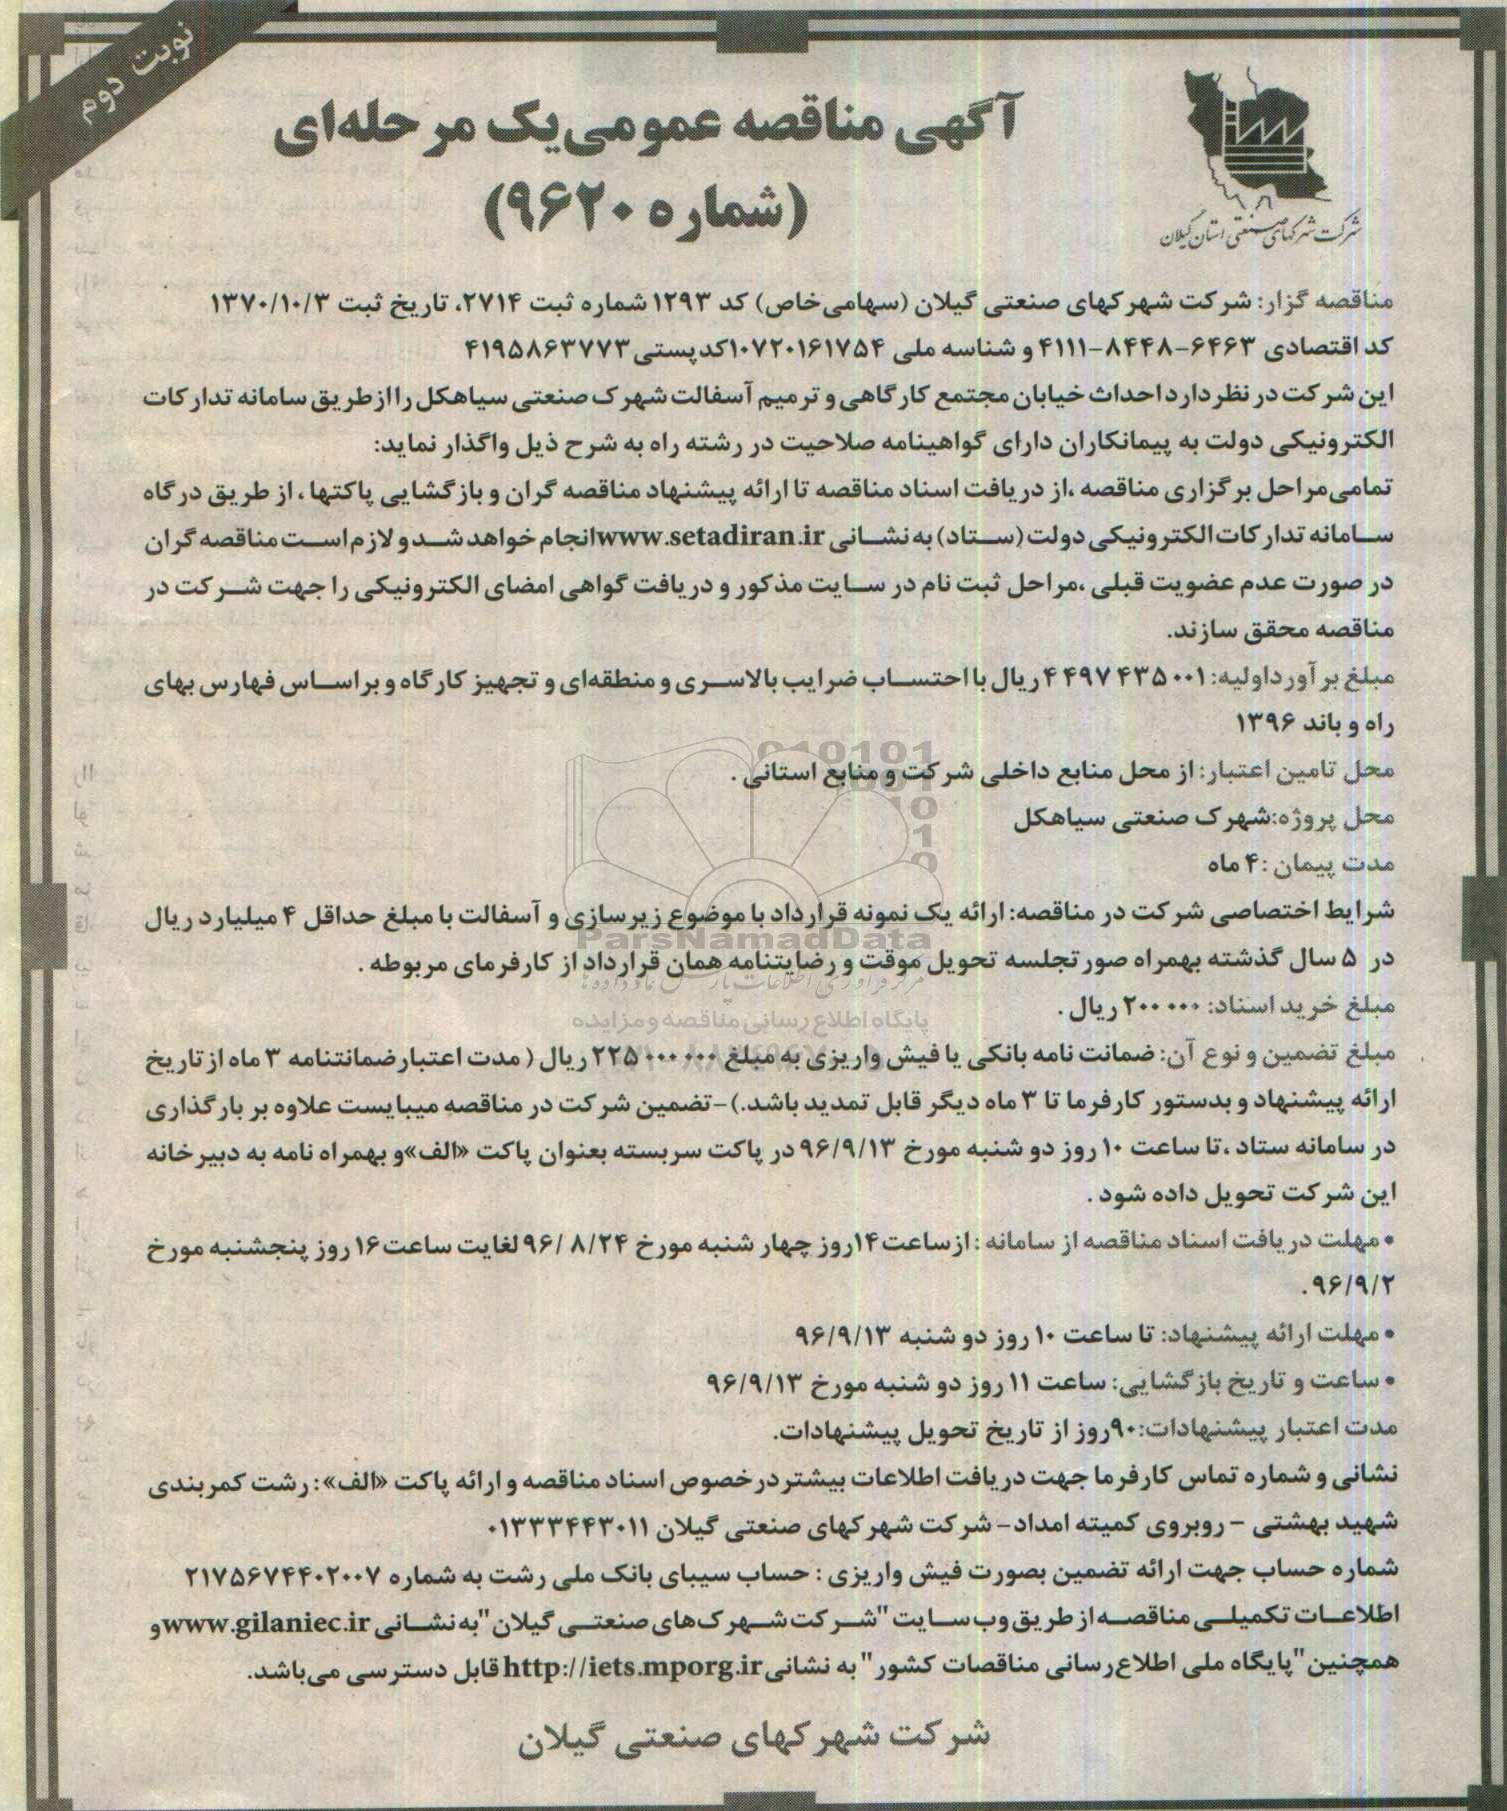 نوبت دوم
آگهی مناقصه عمومی یک مرحله‌ای
(شماره ۹۶۲۰)
شرکت شهرکهای صنعتی استان گیلان
مناقصه گزار: شرکت شهرکهای صنعتی گیلان (سهامی خاص) کد ۱۲۹۳ شماره ثبت ۲۷۱۴، تاریخ ثبت ۱۳۷۰/۱۰/۳
کد اقتصادی ۶۴۶۳-۸۴۴۸-۴۱۱۱ و شناسه ملی ۱۰۷۲۰۱۶۱۷۵۴کدپستی ۴۱۹۵۸۶۳۷۷۳
این شرکت در نظر دارد احداث خیابان مجتمع کارگاهی و ترمیم آسفالت شهرک صنعتی سیاهکل را از طریق سامانه تدارکات
الکترونیکی دولت به پیمانکاران دارای گواهینامه صلاحیت در رشته راه به شرح ذیل واگذار نماید:
تمامی مراحل برگزاری مناقصه ،از دریافت اسناد مناقصه تا ارائه پیشنهاد مناقصه گران و بازگشایی پاکتها ، از طریق درگاه
سامانه تدارکات الکترونیکی دولت (ستاد) به نشانی www.setadiran.ir انجام خواهد شد و لازم است مناقصه گران
در صورت عدم عضویت قبلی ،مراحل ثبت نام در سایت مذکور و دریافت گواهی امضای الکترونیکی را جهت شرکت در
مناقصه محقق سازند.
مبلغ برآورد اولیه: ۴۴۹۷۴۳۵۰۰۱ ریال با احتساب ضرایب بالاسری و منطقه‌ای و تجهیز کارگاه و بر اساس فهارس بهای
راه و باند ۱۳۹۶
محل تامین اعتبار: از محل منابع داخلی شرکت و منابع استانی .
محل پروژه:شهرک صنعتی سیاهکل
مدت پیمان :۴ ماه
شرایط اختصاصی شرکت در مناقصه: ارائه یک نمونه قرارداد با موضوع زیرسازی و آسفالت با مبلغ حداقل ۴ میلیارد ریال
ParsNamadData
در ۵ سال گذشته بهمراه صورتجلسه تحویل موقت و رضایتنامه همان قرارداد از کارفرمای مربوطه .
مبلغ خرید اسناد: ۲۰۰۰۰۰ ریال .
پایگاه اطلاع رسانی مناقصه و مزایده
مبلغ تضمین و نوع آن: ضمانت نامه بانکی یا فیش واریزی به مبلغ ۲۲۵۰۰۰۰۰۰ ریال ( مدت اعتبار ضمانتنامه ۳ ماه از تاریخ
ارائه پیشنهاد و بدستور کارفرما تا ۳ ماه دیگر قابل تمدید باشد.)-تضمین شرکت در مناقصه میبایست علاوه بر بارگذاری
در سامانه ستاد ،تا ساعت ۱۰ روز دو شنبه مورخ ۹۶/۹/۱۳ در پاکت سربسته بعنوان پاکت «الف»و بهمراه نامه به دبیرخانه
این شرکت تحویل داده شود .
• مهلت دریافت اسناد مناقصه از سامانه : از ساعت ۱۴روز چهار شنبه مورخ ۹۶/ ۸/۲۴ لغایت ساعت ۱۶ روز پنجشنبه مورخ
۹۶/۹/۲.
• مهلت ارائه پیشنهاد: تا ساعت ۱۰ روز دو شنبه ۹۶/۹/۱۳
• ساعت و تاریخ بازگشایی: ساعت ۱۱ روز دو شنبه مورخ ۹۶/۹/۱۳
مدت اعتبار پیشنهادات:۹۰روز از تاریخ تحویل پیشنهادات.
نشانی و شماره تماس کارفرما جهت دریافت اطلاعات بیشتر درخصوص اسناد مناقصه و ارائه پاکت «الف»: رشت کمربندی
شهید بهشتی - روبروی کمیته امداد- شرکت شهرکهای صنعتی گیلان ۰۱۳۳۳۴۴۳۰۱۱
شماره حساب جهت ارائه تضمین بصورت فیش واریزی : حساب سیبای بانک ملی رشت به شماره ۲۱۷۵۶۷۴۴۰۲۰۰۷
اطلاعات تکمیلی مناقصه از طریق وب سایت "شرکت شهرک‌های صنعتی گیلان"به نشانی www.gilaniec.ir و
همچنین"پایگاه ملی اطلاع‌رسانی مناقصات کشور" به نشانی http://iets.mporg.ir قابل دسترسی می‌باشد.
شرکت شهرکهای صنعتی گیلان